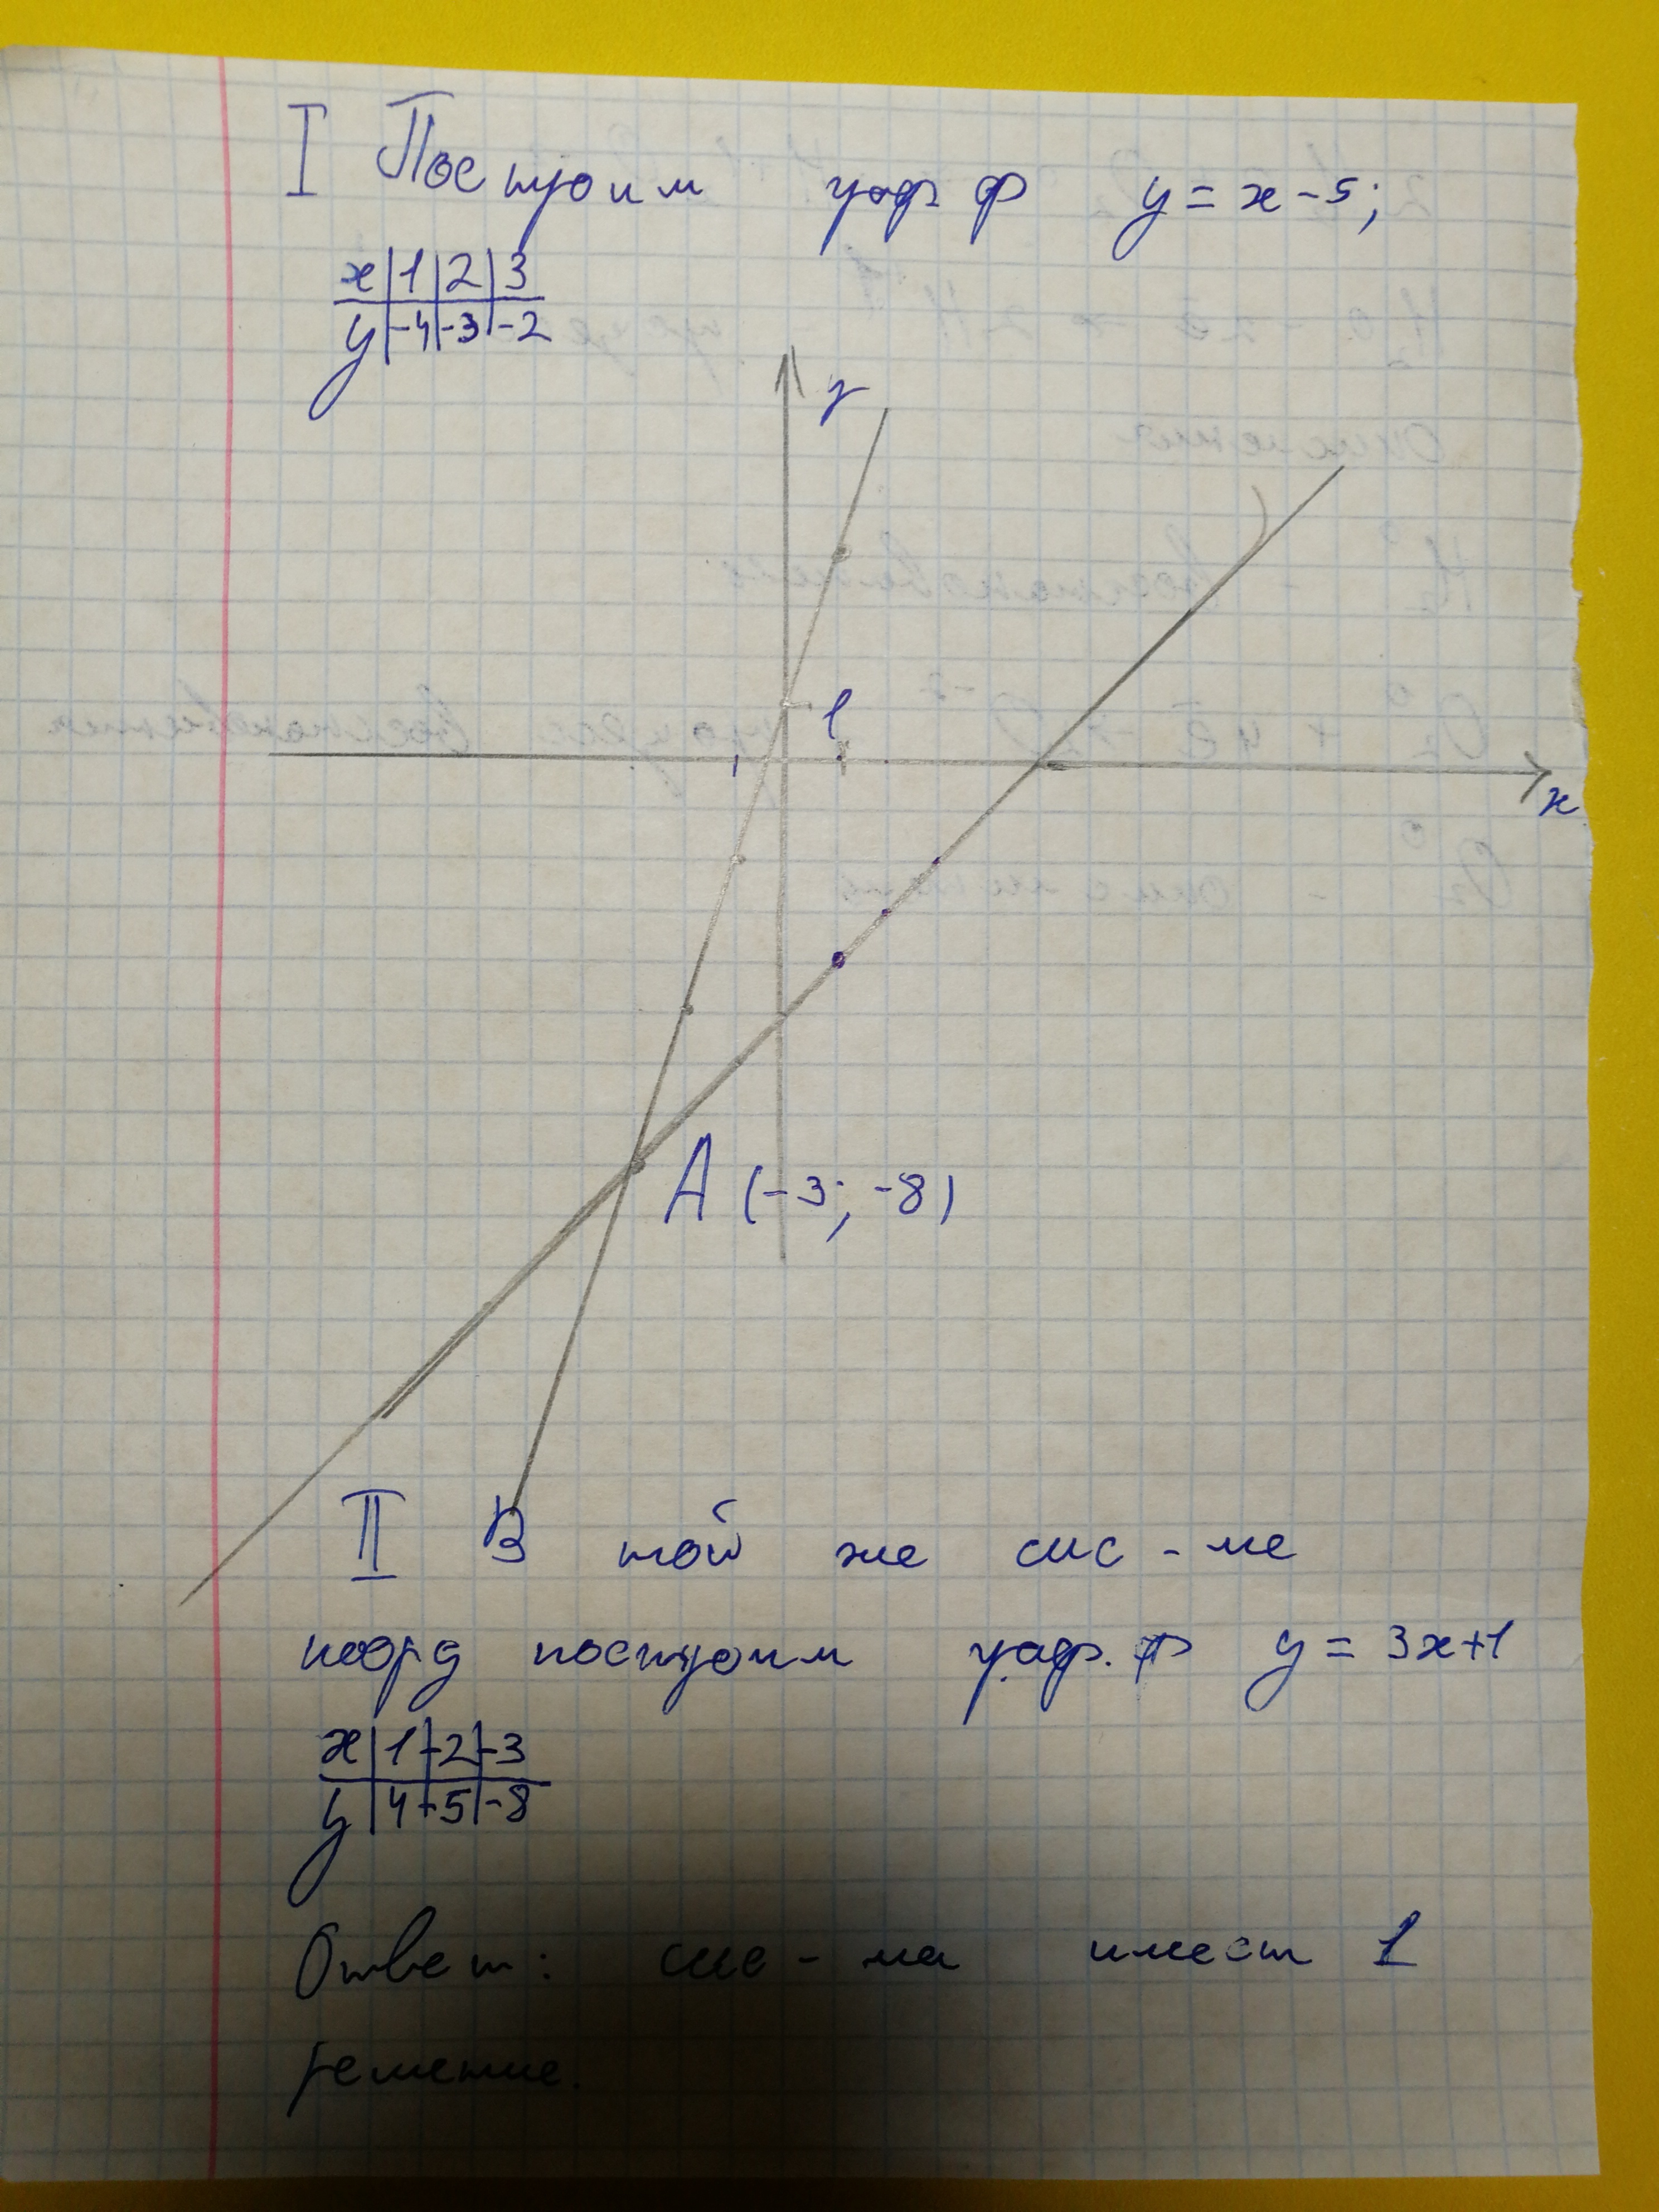 I Построим граф. ф y = x - 5;
x | 1 | 2 | 3
y | -4 | -3 | -2
y
1
x
A (-3; -8)
II В той же сис-ме
коорд построим граф. ф y = 3x+1
x | 1 | -2 | -3
y | 4 | -5 | -8
Ответ: сис-ма имеет 1
решение.